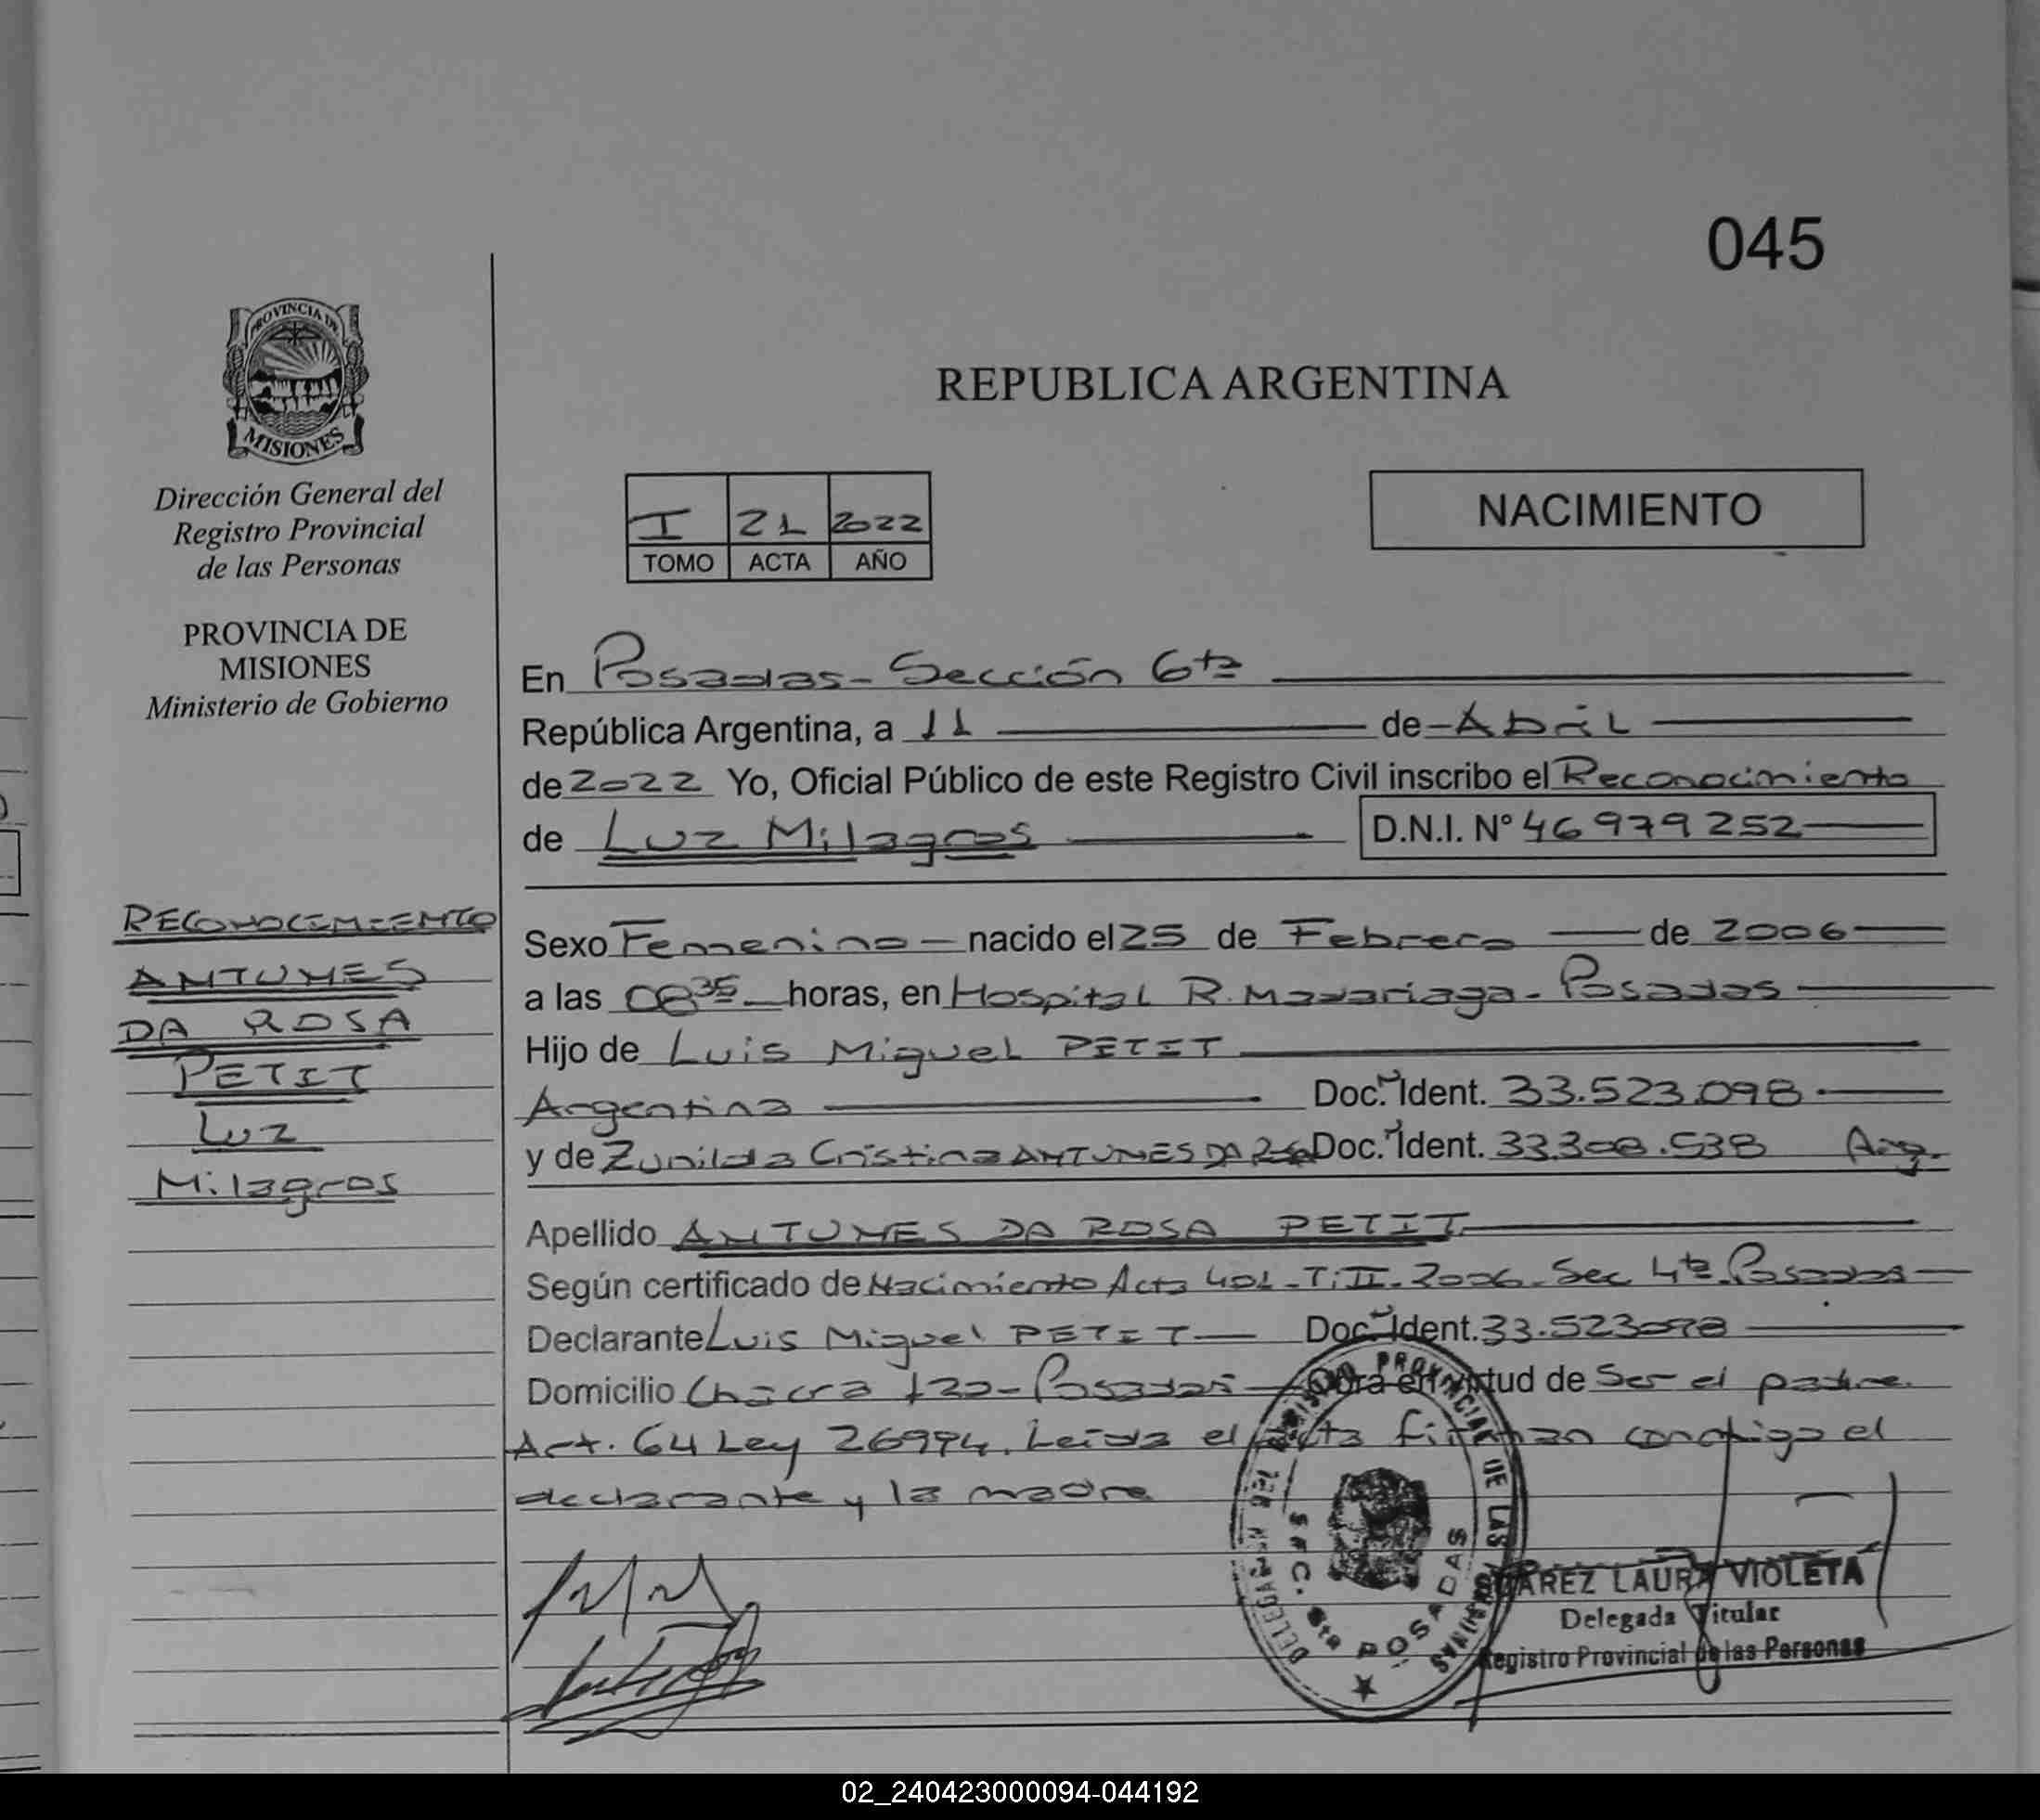 045
PROVINCIA DE
MISIONES
Dirección General del
Registro Provincial
de las Personas
PROVINCIA DE
MISIONES
Ministerio de Gobierno
RECONOCIMIENTO
ANTUNES
DA ROSA
PETIT
Luz
Milagros
REPUBLICA ARGENTINA
I 21 2022
TOMO ACTA AÑO
NACIMIENTO
En Posadas - Sección 6ta
República Argentina, a 11 de - Abril
de 2022 Yo, Oficial Público de este Registro Civil inscribo el Reconocimiento
de Luz Milagros D.N.I. Nº 46 979 252
Sexo Femenino - nacido el 25 de Febrero de 2006
a las 08 35 horas, en Hospital R. Madariaga - Posadas
Hijo de Luis Miguel PETIT
Argentina Doc. Ident. 33.523.098
y de Zunilda Cristina ANTUNES DA Doc. Ident. 33.308.538 Arg.
Apellido ANTUNES DA ROSA PETIT
Según certificado de Nacimiento Acta 401 - T: II - 2006 - Sec 4ta - Posadas
Declarante Luis Miguel PETIT Doc. Ident. 33.523098
Domicilio Chacra 120 - Posadas Obra en virtud de Ser el padre.
Art. 64 Ley 26994. Leida el acta firman conmigo el
declarante y la madre
DELEGACION DEL REGISTRO PROVINCIAL DE LAS PERSONAS
SEC. 6ta POSADAS
MISIONES
LAURA VIOLETA
Delegada Titular
Registro Provincial de las Personas
02_240423000094-044192